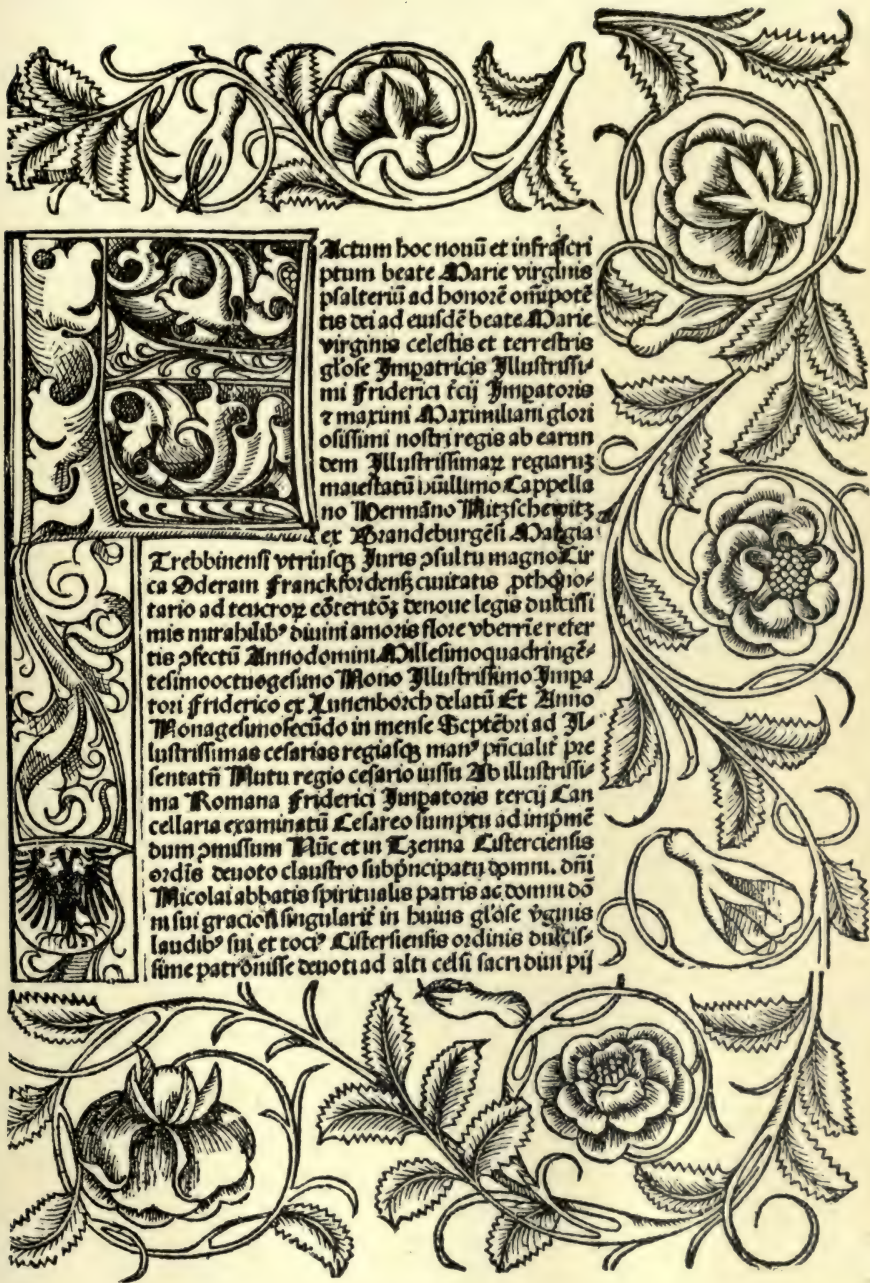 FActum hoc nouū et infrascri
ptum beate Marie virginis
psalteriū ad honorē om̄ipotē
tis dei ad eiusdē beate Marie
virginis celestis et terrestris
gl'ose Imꝑatricis Illustrissi-
mi Friderici t̄cij Imꝑatoris
⁊ maximi Maximiliani glori
osissimi nostri regis ab earun
dem Illustrissimaꝝ regiarūꝫ
maiestatū hūillimo Cappella
no Hermāno Nitzschewitz
ex Brandeburgēsi Margia
Trebbinensi vtriusqꝫ Juris ꝯsultu magno Cir
ca Oderam Franckfordensꝫ ciuitatis ꝓthono-
tario ad teucroꝝ cōteritōꝫ denoue legis dulcissi
mis mirabilibꝰ diuini amoris flore vberrie refer
tis ꝯfectū Annodomini Millesimoquadringē-
tesimooctuogesimo Nono Illustrissimo Imꝑa
tori Friderico ex Lunenborch delatū Et Anno
Nonagesimosecūdo in mense Septēbri ad Il-
lustrissimas cesarias regiasqꝫ manꝰ pn̄cialit̄ pre
sentatū Nutu regio cesario iussu Ab illustrissi-
ma Romana Friderici Imꝑatoris tercij Can
cellaria examinatū Cesareo sumptu ad imp̄mē
dum ꝯmissum Nūc et in Tzenna Cisterciensis
ordīs deuoto claustro subp̄ncipatu dom̄ni. dn̄i
Nicolai abbatis spiritualis patris ac domini dō
ni sui graciosi singularit̄ in huius gl'ose v̄ginis
laudibꝰ sui et tociꝰ Cistersiensis ordinis dulcis-
sime patronisse deuoti ad alti celsi sacri diui pij